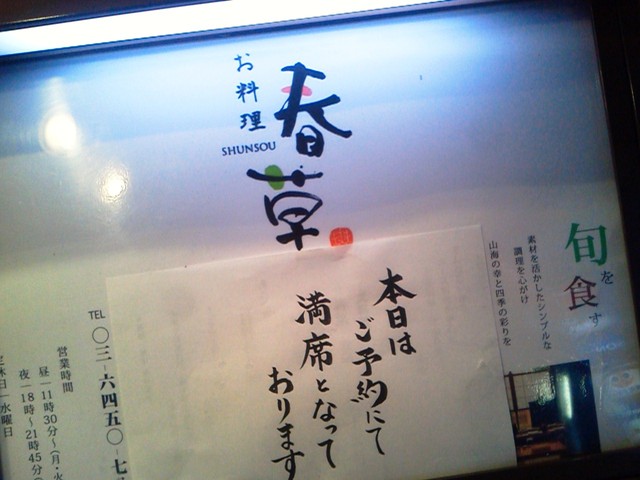 お料理
春草
SHUNSOU
旬を
食す
素材を活かしたシンプルな
調理を心がけ
山海の幸と四季の彩りを
本日は
ご予約にて
満席となって
おります
TEL 〇三-六四五〇-七
営業時間
昼－11時30分～(月・火
夜－18時～21時45分(
定休日－水曜日